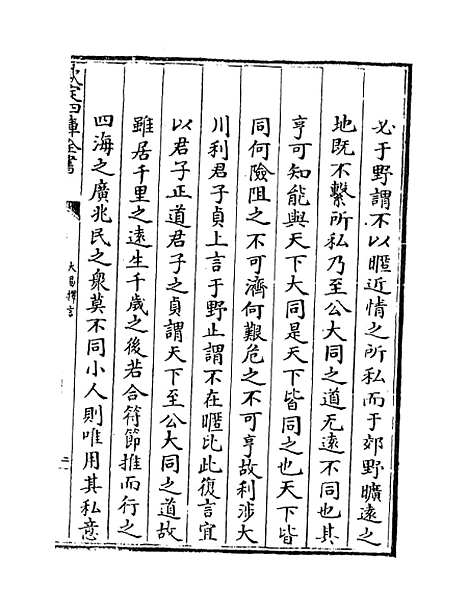 必于野謂不以暱近情之所私而于郊野曠遠之
地既不繫所私乃至公大同之道无遠不同也其
亨可知能與天下大同是天下皆同之也天下皆
同何險阻之不可濟何艱危之不可亨故利涉大
川利君子貞上言于野止謂不在暱比此復言宜
以君子正道君子之貞謂天下至公大同之道故
雖居千里之遠生千歲之後若合符節推而行之
四海之廣兆民之衆莫不同小人則唯用其私意
欽定四庫全書
大易擇言